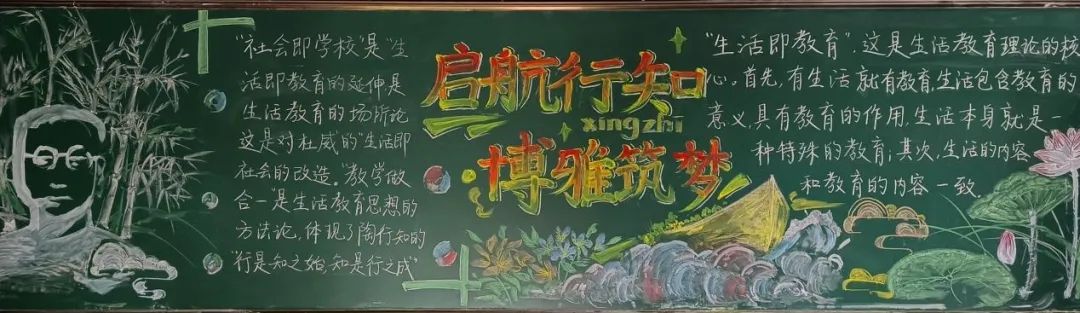 "社会即学校"是"生
活即教育的延伸是
生活教育的场所论
这是对杜威的"生活即
社会的改造。"教学做
合一"是生活教育思想的
方法论,体现了陶行知的
"行是知之始,知是行之成"
启航行知
xingzhī
博雅筑梦
"生活即教育".这是生活教育理论的核
心。首先,有生活就有教育,生活包含教育的
意义,具有教育的作用,生活本身就是一
种特殊的教育;其次,生活的内容
和教育的内容一致